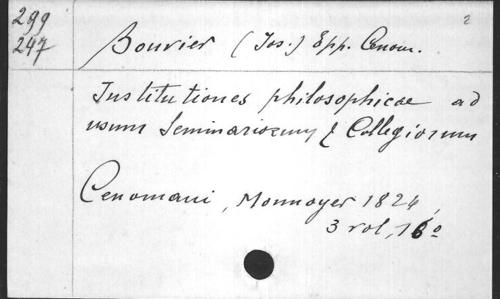 299
247
Bouvier (Jos.) Epp. Cenom.
2
Institutiones philosophicae ad
usum Seminariorum & Collegiorum
Cenomani, Monnoyer 1824,
3 vol, 16º